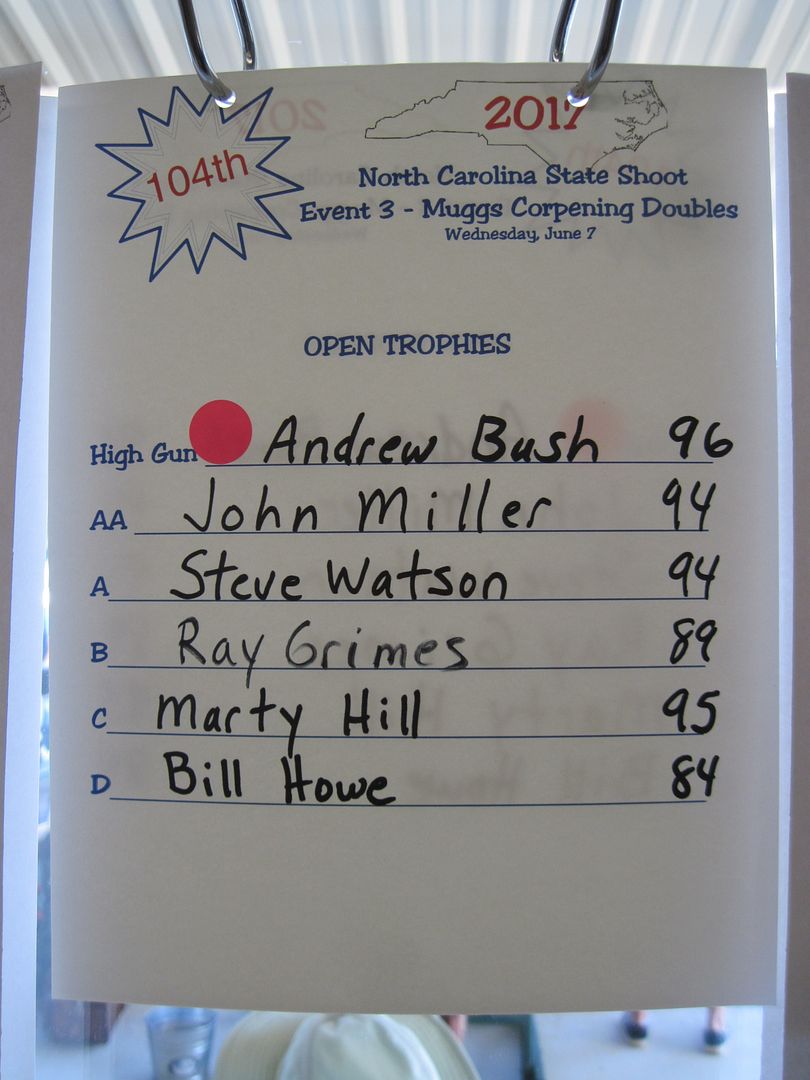 104th
2017
North Carolina State Shoot
Event 3 - Muggs Corpening Doubles
Wednesday, June 7
OPEN TROPHIES
High Gun Andrew Bush 96
AA John Miller 94
A Steve Watson 94
B Ray Grimes 89
C Marty Hill 95
D Bill Howe 84